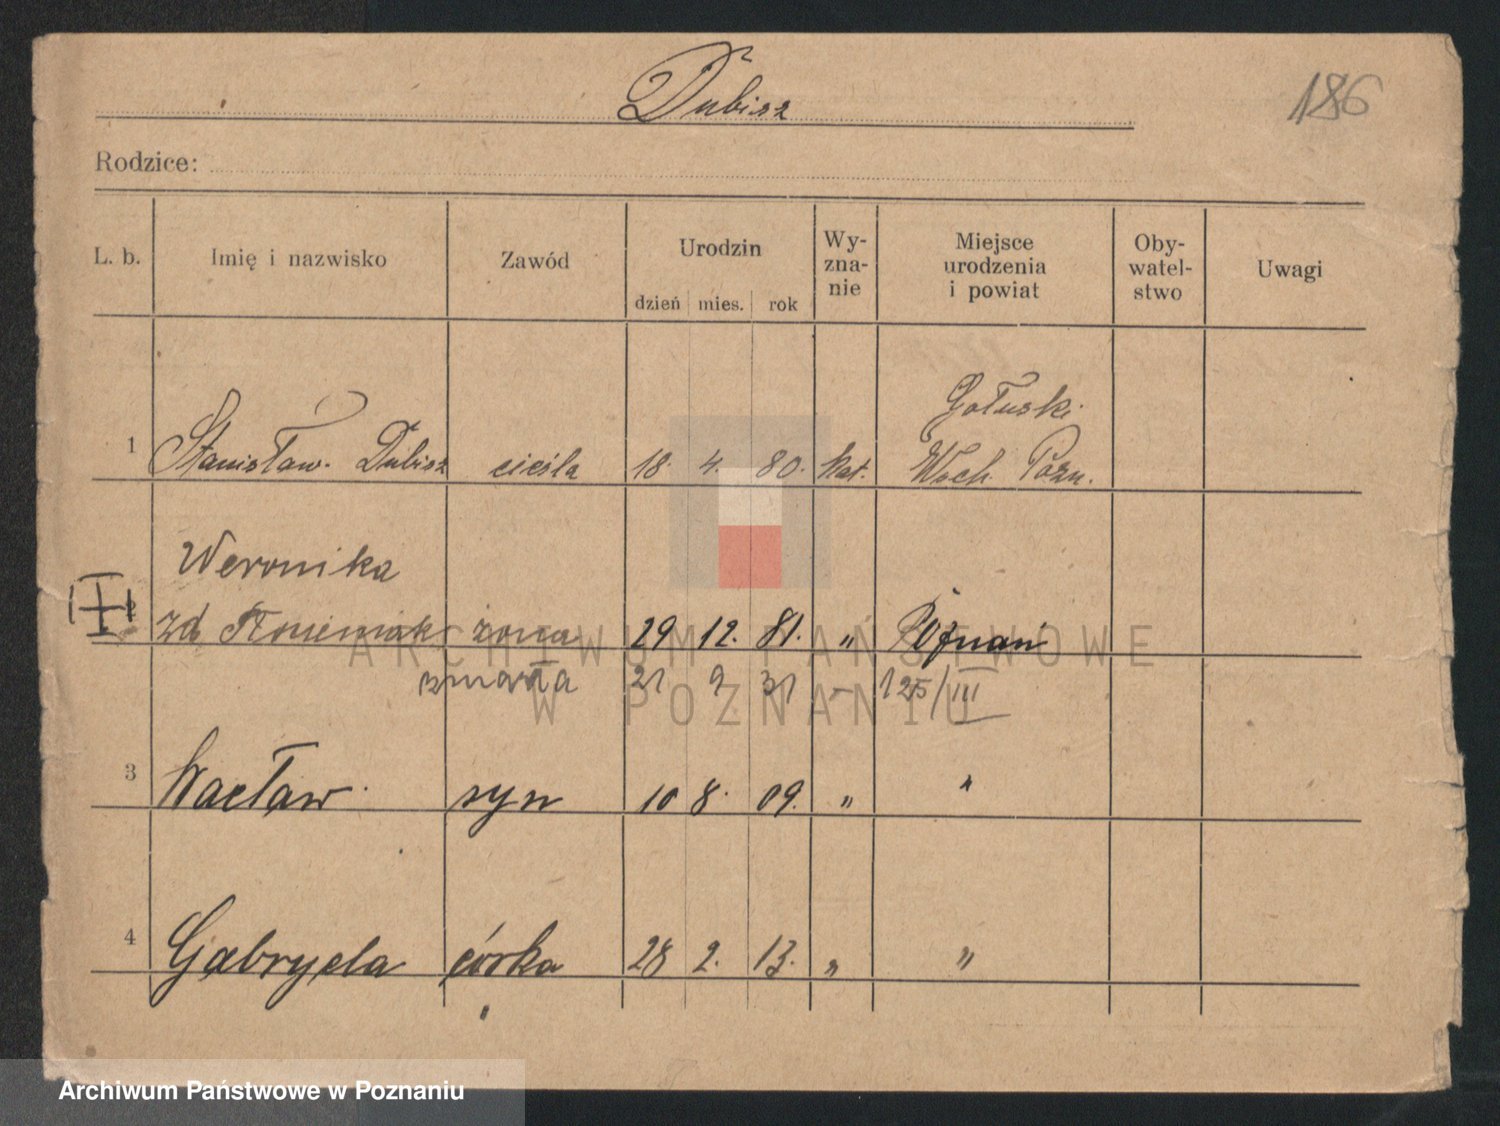 Dubisz
186
Rodzice:
L. b. Imię i nazwisko Zawód Urodzin dzień mies. rok Wy-zna-nie Miejsce urodzenia i powiat Oby-watel-stwo Uwagi
Gołuski
1 Stanisław Dubisz cieśla 18. 4. 80. kat. Wsch. Pozn.
Weronika
2 zd żona 29 12. 81. " Poznań
zmarła 21 9 31 – 125/III
3 Wacław syn 10 8. 09. " "
4 Gabryela córka 28 2. 13. " "
ARCHIWUM PAŃSTWOWE
W POZNANIU
Archiwum Państwowe w Poznaniu